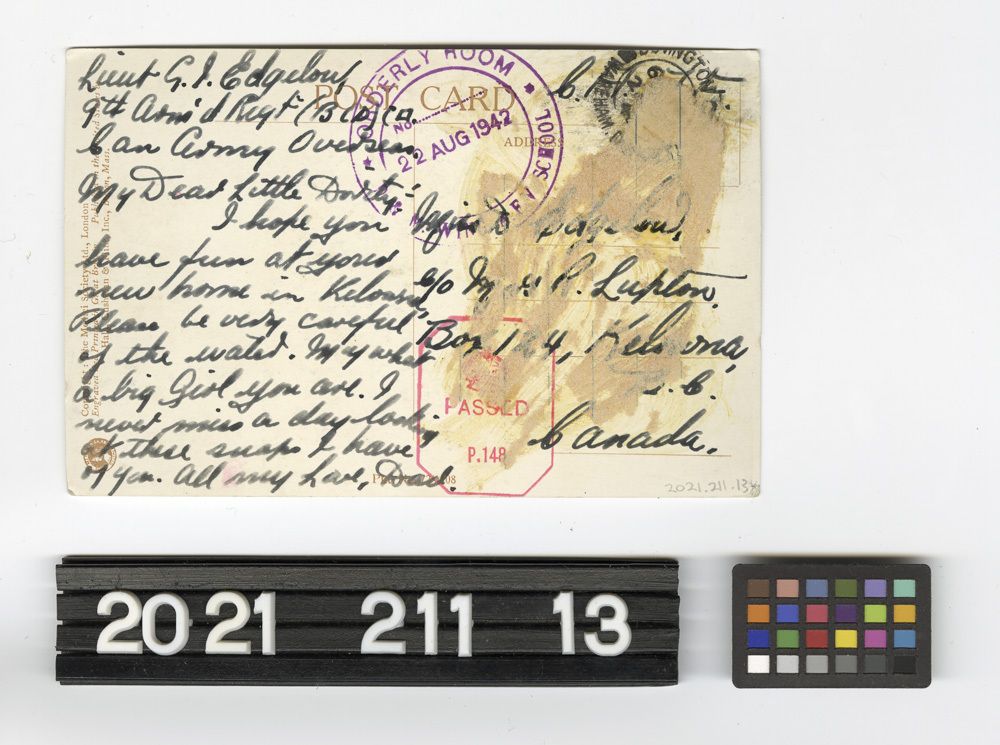 Lieut G. J. Edgelow
9th Arm'd Regt (BCD) CA.
Can Army Overseas.
My Dear Little Dorty:
I hope you
have fun at your
new home in Kelowna,
Please be very careful
of the water. My what
a big Girl you are. I
never miss a day looking
at these snaps I have
of you. All my love, Dad.
POST CARD
ADDRESS
ORDERLY ROOM
No.
22 AUG 1942
SCHOOL
Edgelow,
c/o Mrs P. Lupton.
Box 124, Kelowna,
B.C.
Canada.
PASSED
P.148
2021.211.13
2021 211 13